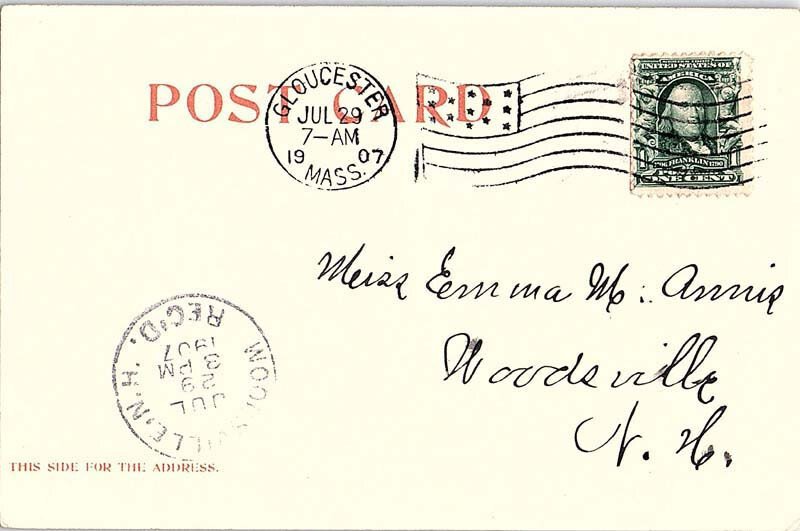 POST CARD
GLOUCESTER
JUL 29
7-AM
1907
MASS.
UNITED STATES OF
AMERICA
FRANKLIN
ONE CENT
Miss Emma M. Annis
Woodsville
N. H.
WOODSVILLE, N.H.
REC'D.
JUL
29
3 PM
1907
THIS SIDE FOR THE ADDRESS.